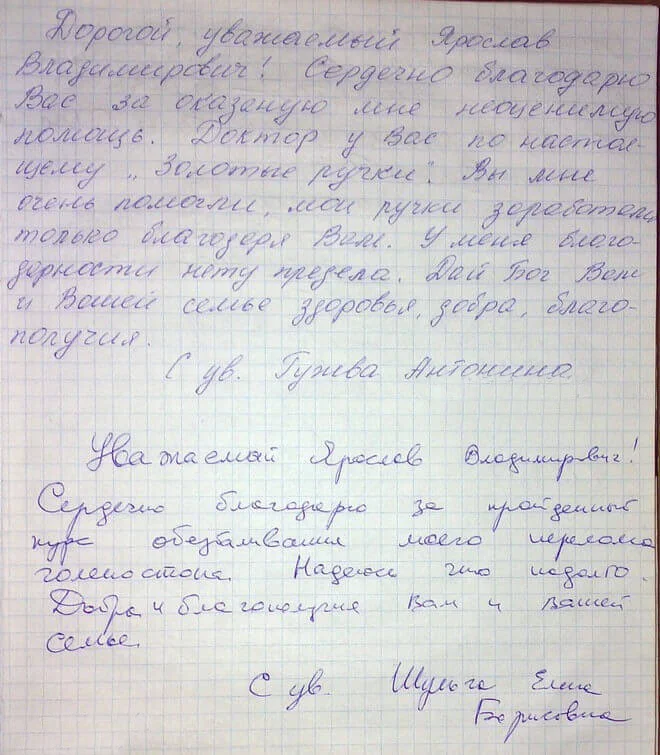 Дорогой, уважаемый Ярослав
Владимирович! Сердечно благодарю
Вас за оказаную мне неоценимую
помощь. Доктор у Вас по настоя-
щему „Золотые ручки". Вы мне
очень помогли, мои ручки заработали
только благодаря Вам. У меня благо-
дарности нету предела. Дай Бог Вам
и Вашей семье здоровья, добра, благо-
получия.
С ув. Гужва Антонина
Уважаемый Ярослав Владимирович!
Сердечно благодарю за пройденный
курс обезбаливания моего перелома
голеностопа. Надеюсь что надолго.
Добра и благополучия Вам и Вашей
семье.
С ув. Шульга Елена
Борисовна